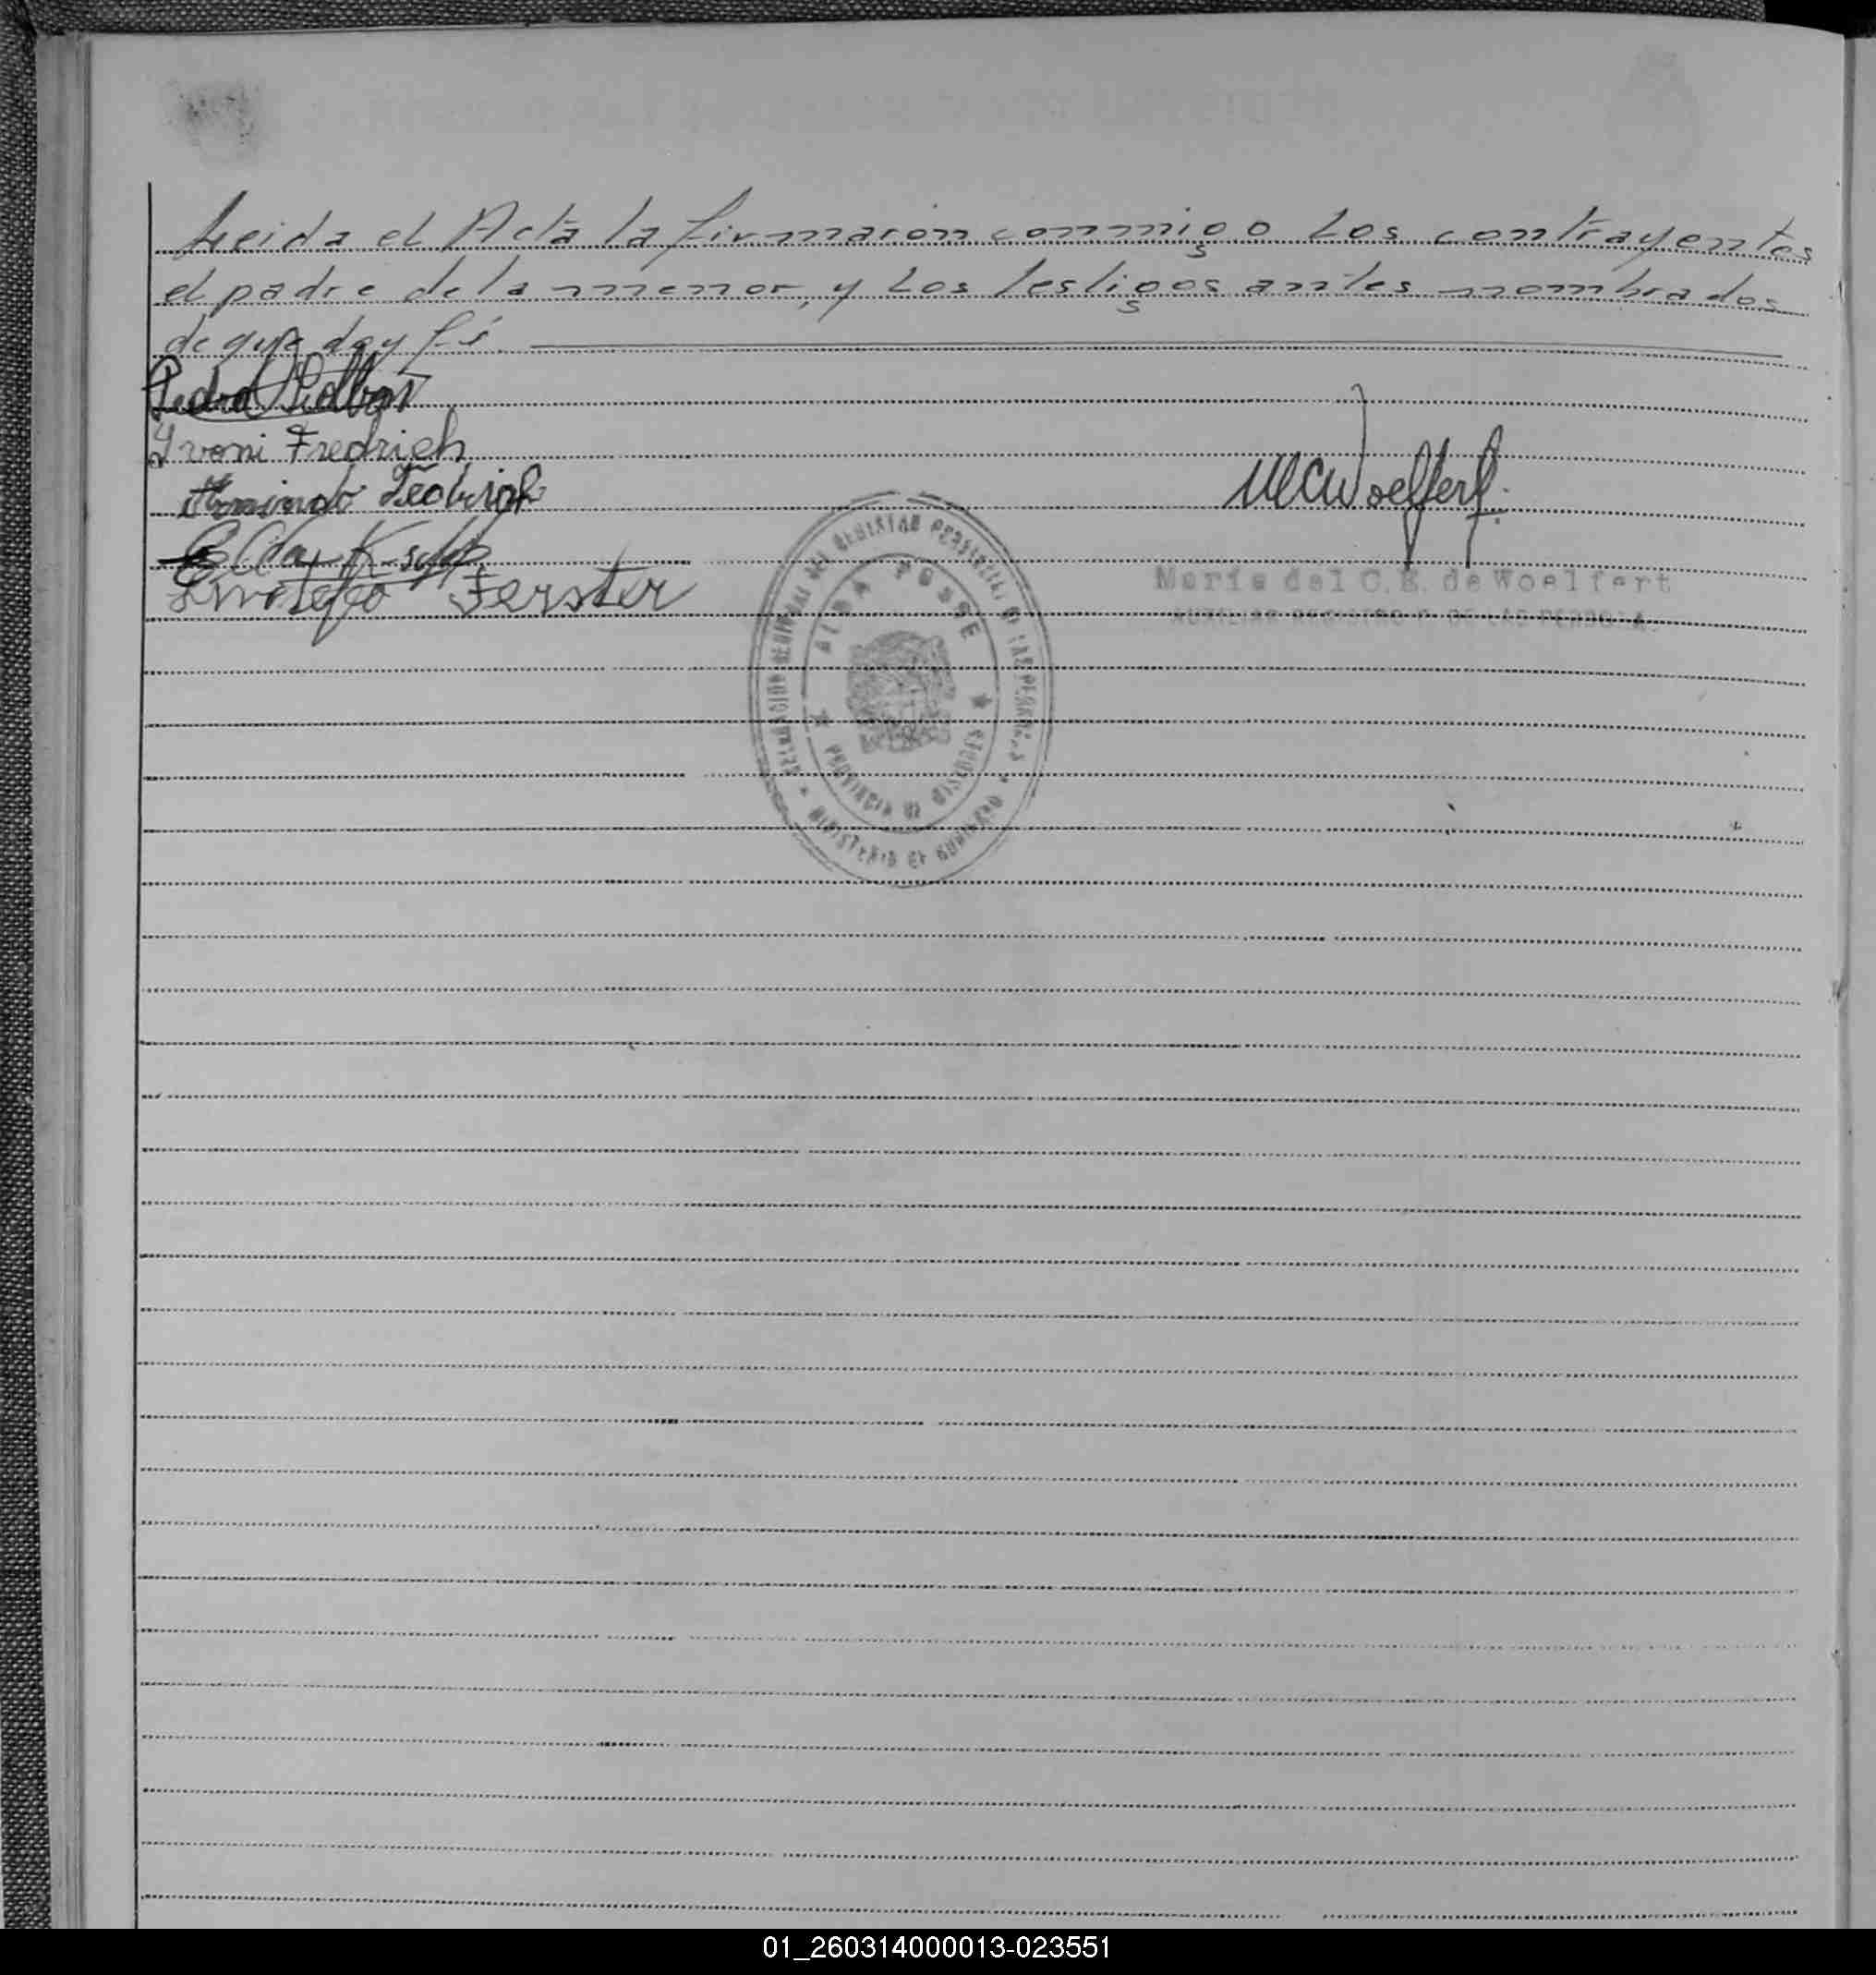 Leida el Acta la firmaron conmigo Los contrayentes
el padre de la menor, y Los testigos antes nombrados
de que doy fé
Pedro
Yvoni Fredrich
Fredrich
Ferster
MCWoelfert
Maria del C. E. de Woelfert
AUXILIAR REGISTRO P. DE LAS PERSONAS
DELEGACION SECCIONAL DEL REGISTRO PROVINCIAL DE LAS PERSONAS
ALBA POSSE
PROVINCIA DE MISIONES
MINISTERIO DE GOBIERNO
01_260314000013-023551